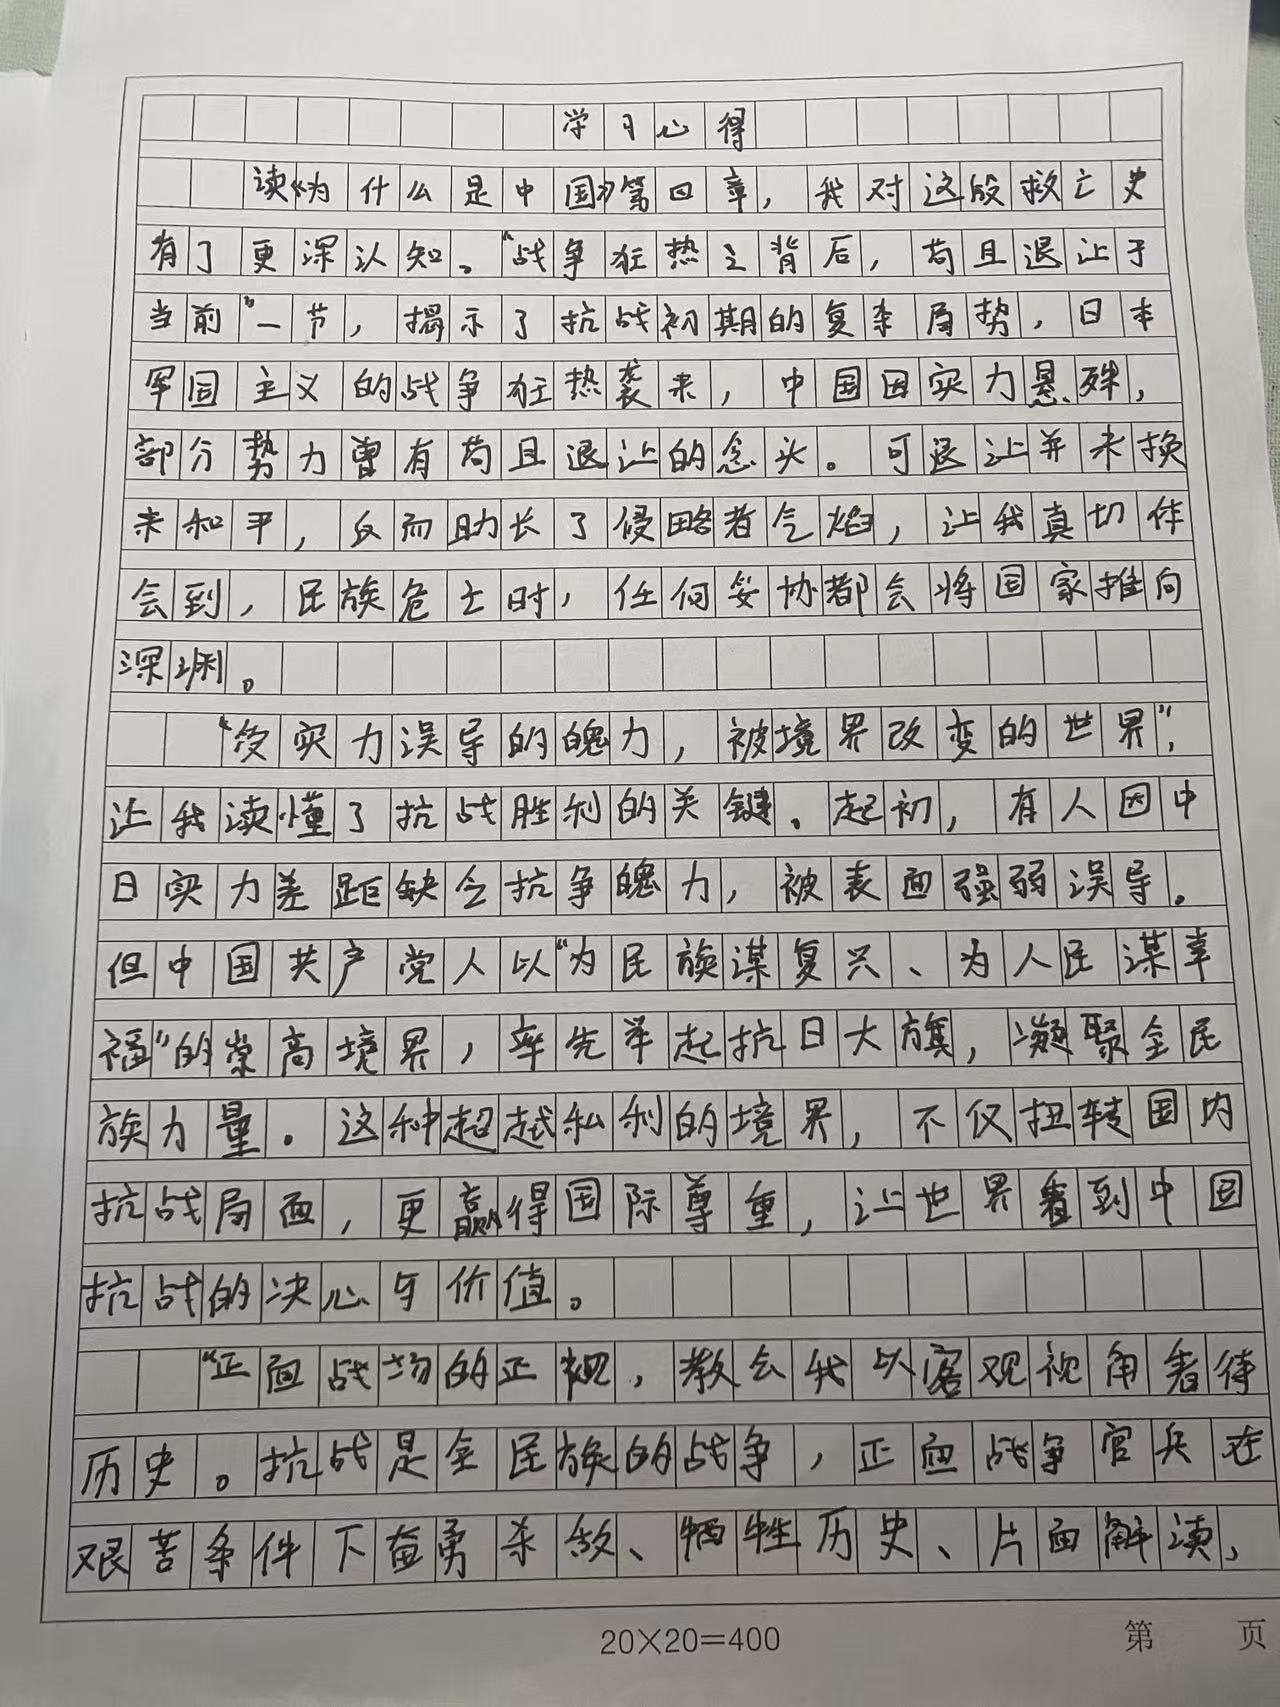 学习心得
读《为什么是中国》第四章，我对这段救亡史
有了更深认知。“战争狂热之背后，苟且退让于
当前”一节，揭示了抗战初期的复杂局势，日本
军国主义的战争狂热袭来，中国因实力悬殊，
部分势力曾有苟且退让的念头。可退让并未换
来和平，反而助长了侵略者气焰，让我真切体
会到，民族危亡时，任何妥协都会将国家推向
深渊。
“受实力误导的魄力，被境界改变的世界”，
让我读懂了抗战胜利的关键。起初，有人因中
日实力差距缺乏抗争魄力，被表面强弱误导。
但中国共产党人以“为民族谋复兴、为人民谋幸
福”的崇高境界，率先举起抗日大旗，凝聚全民
族力量。这种超越私利的境界，不仅扭转国内
抗战局面，更赢得国际尊重，让世界看到中国
抗战的决心与价值。
“正面战场的正视，教会我以客观视角看待
历史。抗战是全民族的战争，正面战争官兵在
艰苦条件下奋勇杀敌、牺牲历史、片面解读，
20×20=400
第 页